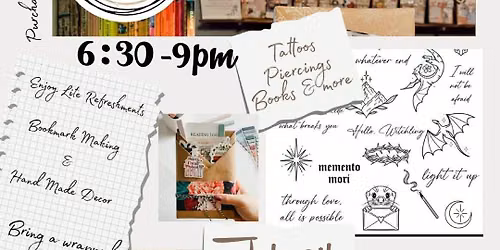 Purcha
6:30-9pm
Tattoos
Piercings
Books & more
Enjoy Lite Refreshments
Bookmark Making
&
Hand Made Decor
Bring a wrapped
whatever end
I will
not be
afraid
what breaks you
Hello, Witchling
memento
mori
light it up
through love,
all is possible